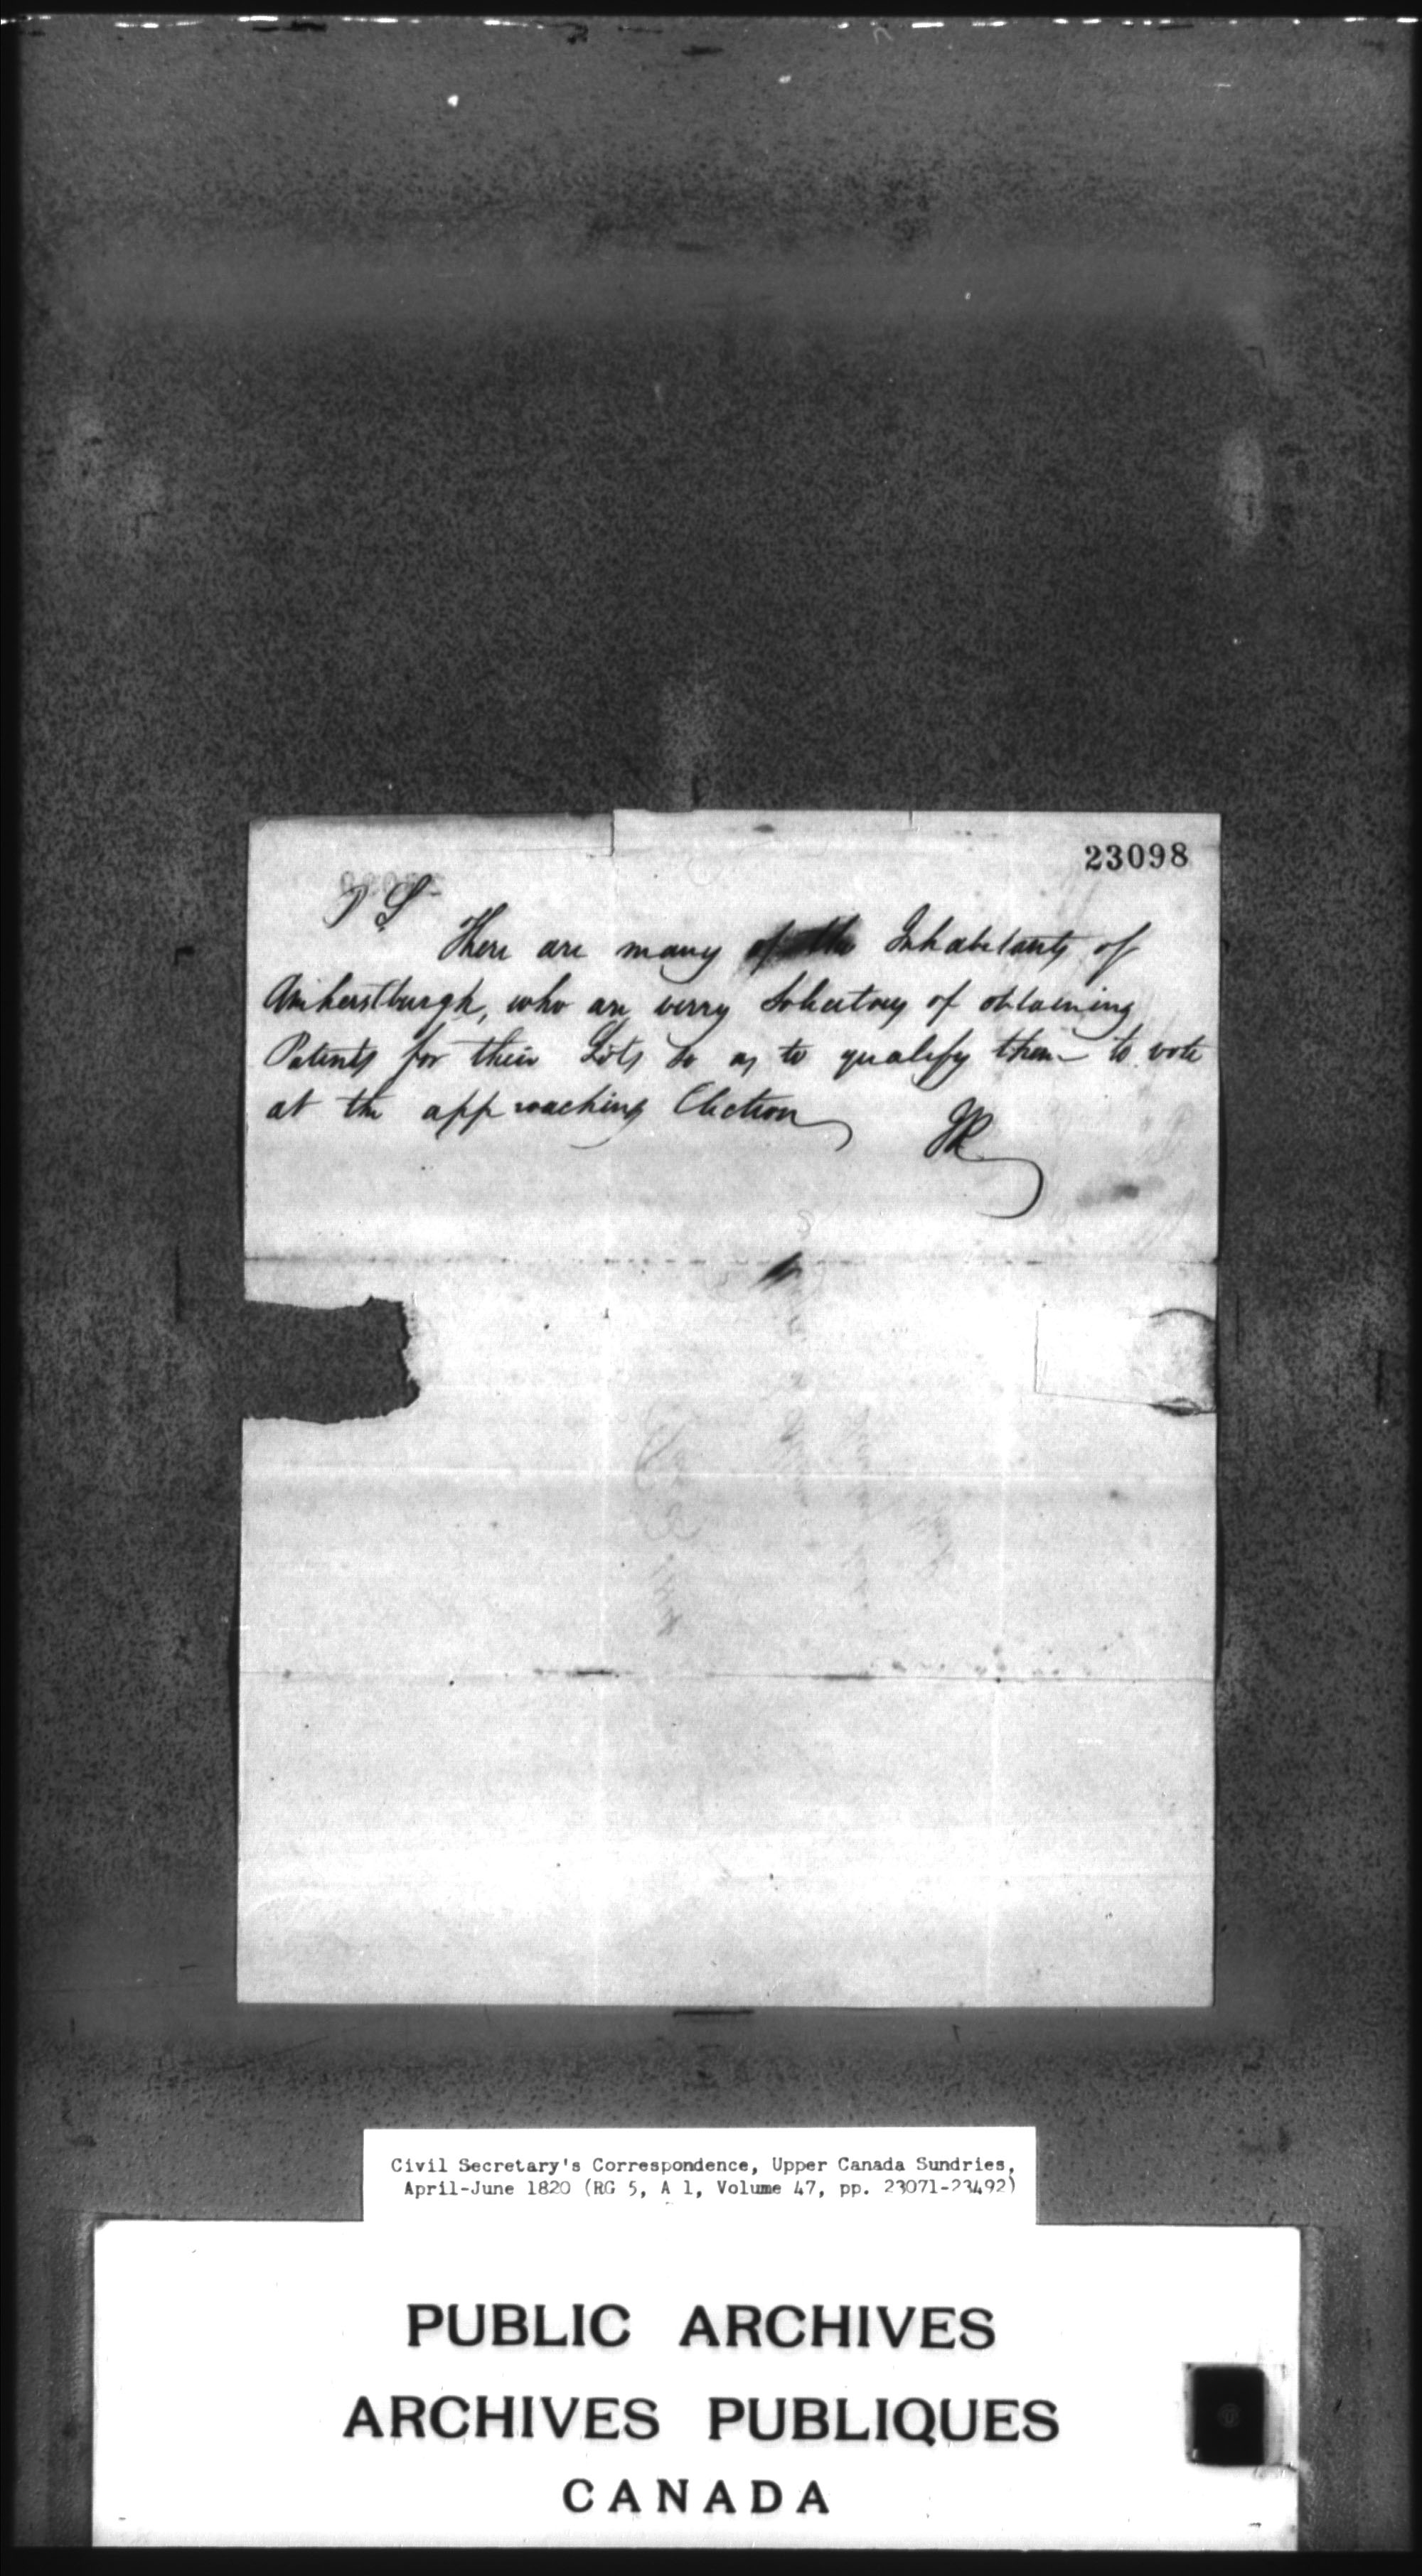 23098
P S
There are many of the Inhabitants of
Amherstburgh, who are verry Solicitous of obtaining
Patents for their Lots so as to qualify them to vote
at the approaching Election
JR
Civil Secretary's Correspondence, Upper Canada Sundries,
April-June 1820 (RG 5, A 1, Volume 47, pp. 23071-23492)
PUBLIC ARCHIVES
ARCHIVES PUBLIQUES
CANADA